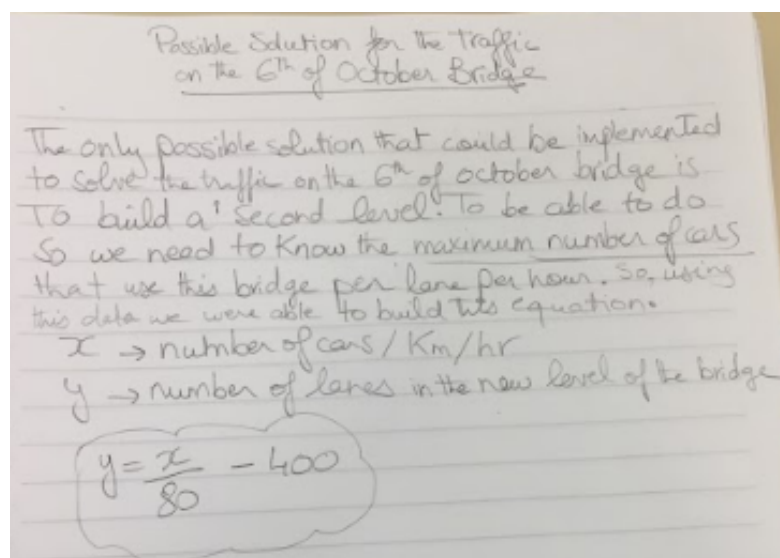 Possible Solution for the traffic
on the 6th of October Bridge
The only possible solution that could be implemented
to solve the traffic on the 6th of october bridge is
To build a second level. To be able to do
So we need to know the maximum number of cars
that use this bridge per lane per hour. So, using
this data we were able to build this equation.
x → number of cars/Km/hr
y → number of lanes in the new level of the bridge
y = x/80 - 400